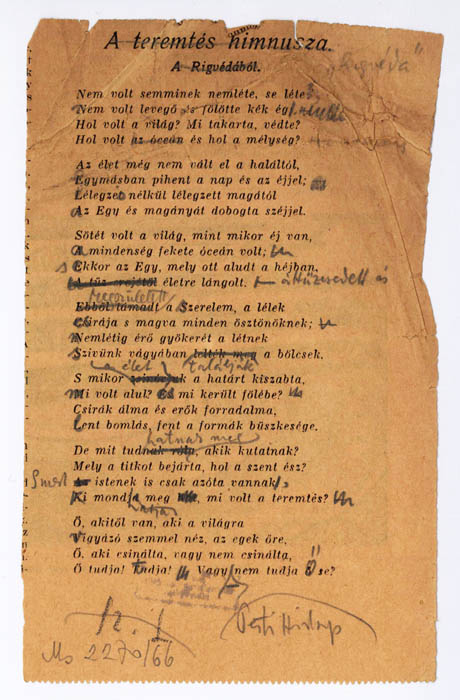 A teremtés himnusza.
"Rigvéda"
A Rigvédából.
Nem volt semminek nemléte, se léte
Nem volt levegő és fölötte kék ég
Hol volt a világ? Mi takarta, védte?
Hol volt az óceán és hol a mélység?
Az élet még nem vált el a haláltól,
Egymásban pihent a nap és az éjjel;
Lélegzet nélkül lélegzett magától
Az Egy és magányát dobogta széjjel.
Sötét volt a világ, mint mikor éj van,
A mindenség fekete óceán volt;
s Ekkor az Egy, mely ott aludt a héjban,
A tűz erejétől életre lángolt. áttüzesedett és
Megszületett
Ebből támadt a Szerelem, a lélek
Csirája s magva minden ösztönöknek;
Nemlétig érő gyökerét a létnek
Szivünk vágyában lelték meg a bölcsek.
élet találják
S mikor a határt kiszabta,
Mi volt alul? És mi került fölébe?
Csirák álma és erők forradalma,
Lent bomlás, fent a formák büszkesége.
hatnak mel
De mit tudnak róla, akik kutatnak?
Mely a titkot bejárta, hol a szent ész?
S mert istenek is csak azóta vannak
Ki mondja meg, mi volt a teremtés?
Ő, akitől van, aki a világra
Vigyázó szemmel néz, az egek őre,
Ő, aki csinálta, vagy nem csinálta,
Ő tudja! Tudja! Vagy nem tudja Ő se?
12. I
Pesti Hirlap
Ms 2270/66